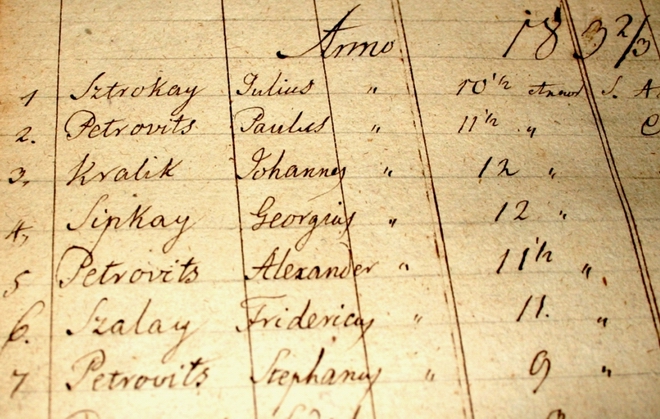 Anno 183 2/3
1 Sztrokay Julius " 10 1/2 Annor S. A
2. Petrovits Paulus " 11 1/2 " C
3, Kralik Johannes " 12 "
4, Sipkay Georgius " 12 "
5 Petrovits Alexander " 11 1/2 "
6. Szalay Fridericus " 11. "
7 Petrovits Stephanus " 9 "